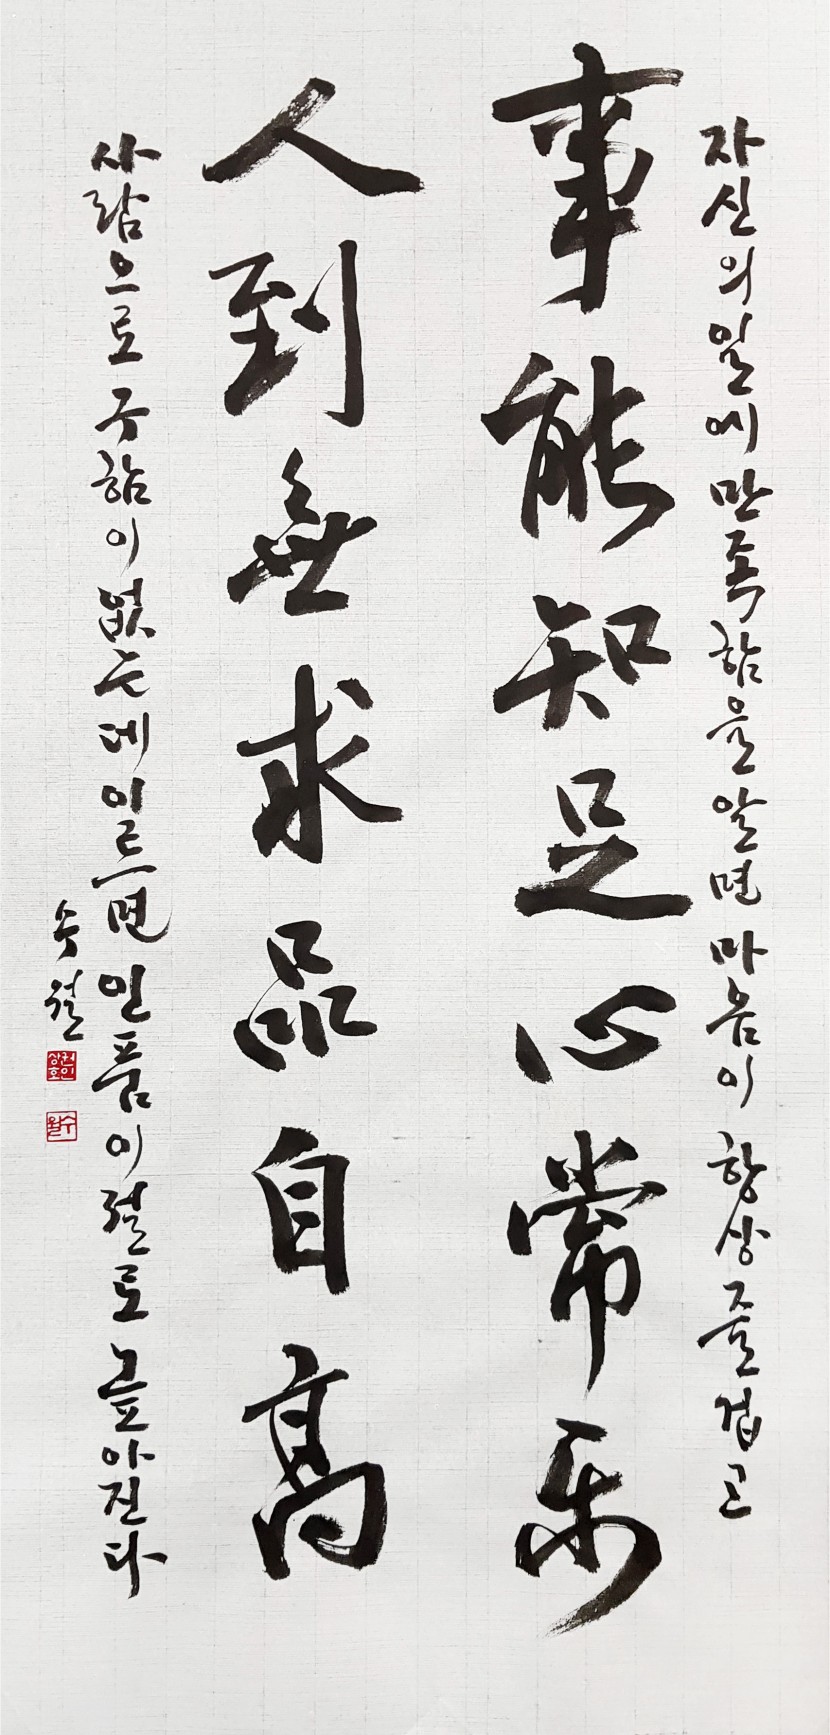 자신의 일에 만족함을 알면 마음이 항상 즐겁고
事能知足心常樂
人到無求品自高
사람으로 구함이 없는데 이르면 인품이 절로 높아진다
수월
권인상호
수월